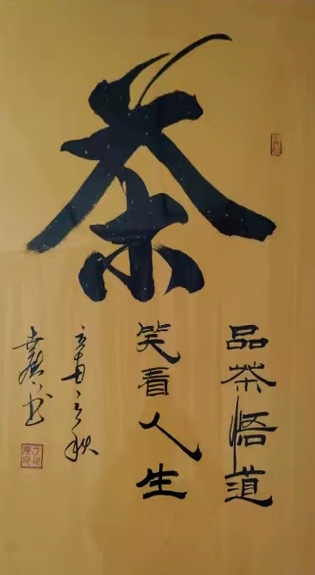 茶
品茶悟道
笑看人生
辛 之秋
书